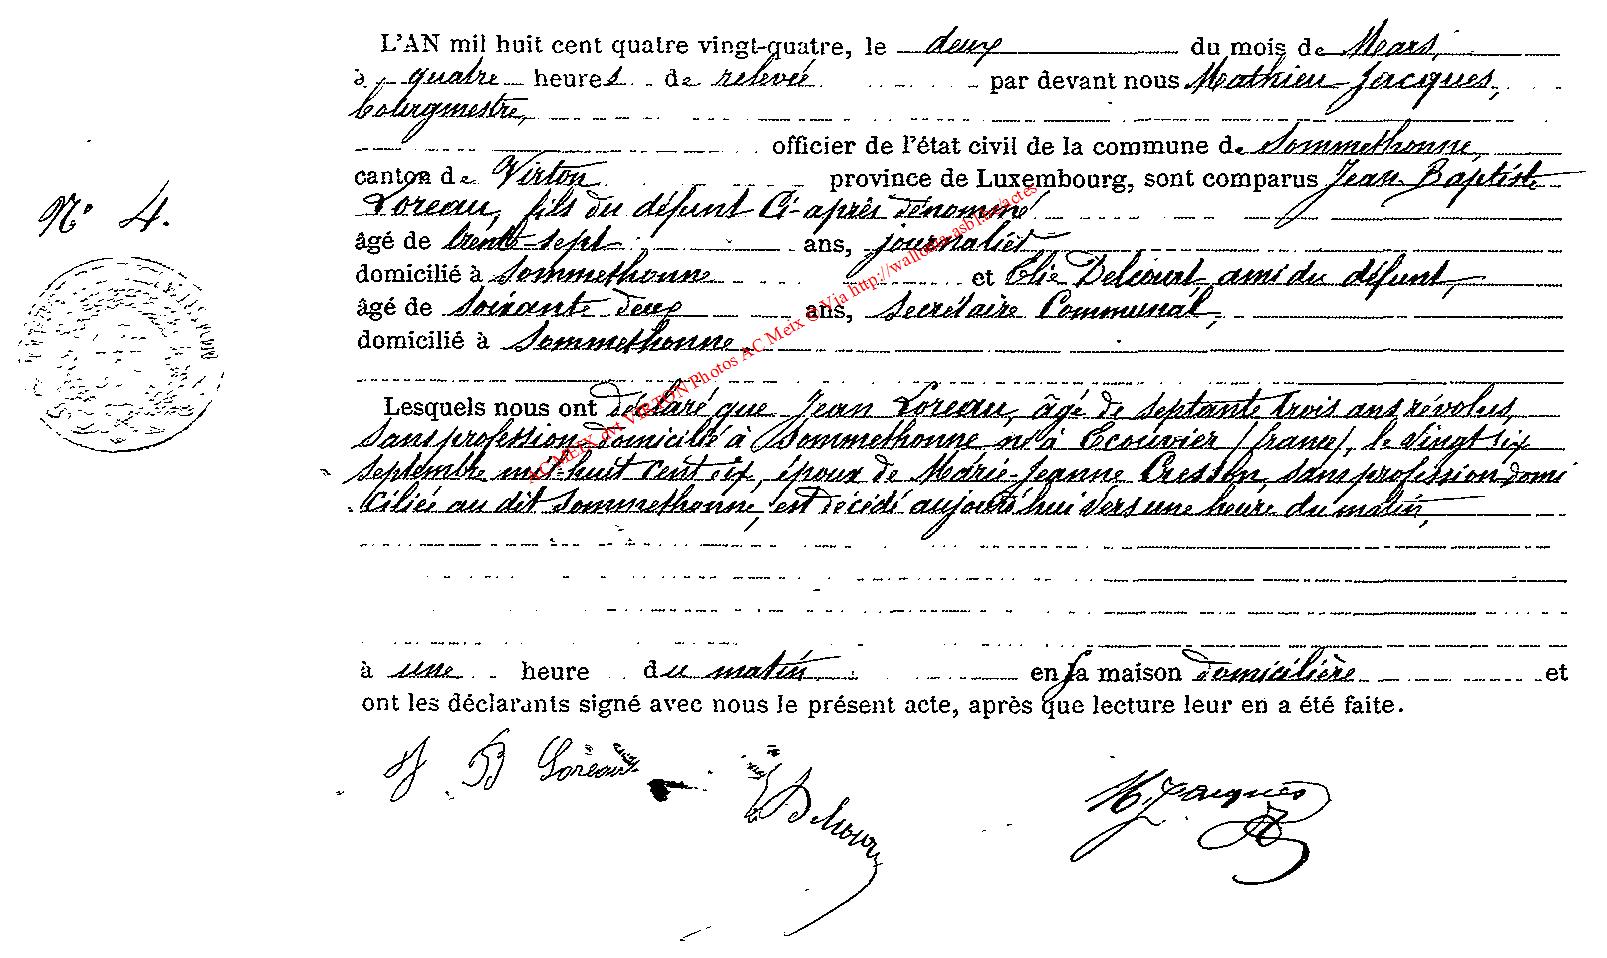 L'AN mil huit cent quatre vingt-quatre, le deux du mois de Mars,
à quatre heures de relevée par devant nous Mathieu Jacques,
bourgmestre,
officier de l'état civil de la commune de Sommethonne,
canton de Virton province de Luxembourg, sont comparus Jean Baptiste
Loreau, fils du défunt ci-après dénommé
N° 4.
âgé de trente-sept ans, journalier
domicilié à Sommethonne et Elie Delcourt ami du défunt,
âgé de soixante deux ans, secrétaire Communal,
domicilié à Sommethonne
Lesquels nous ont déclaré que Jean Loreau, âgé de septante trois ans révolus,
sans profession domicilié à Sommethonne né à Ecouvier (france), le vingt six
septembre mil-huit cent dix, époux de Marie-Jeanne Cresson, sans profession domi
ciliée au dit Sommethonne, est décédé aujourd'hui vers une heure du matin,
à une heure du matin en sa maison domicilière et
ont les déclarants signé avec nous le présent acte, après que lecture leur en a été faite.
J B Loreau
E Delcourt
M. Jacques
AC MEIX dvt VIRTON Photos AC Meix @ Via http://wallonia-asbl.be/actes